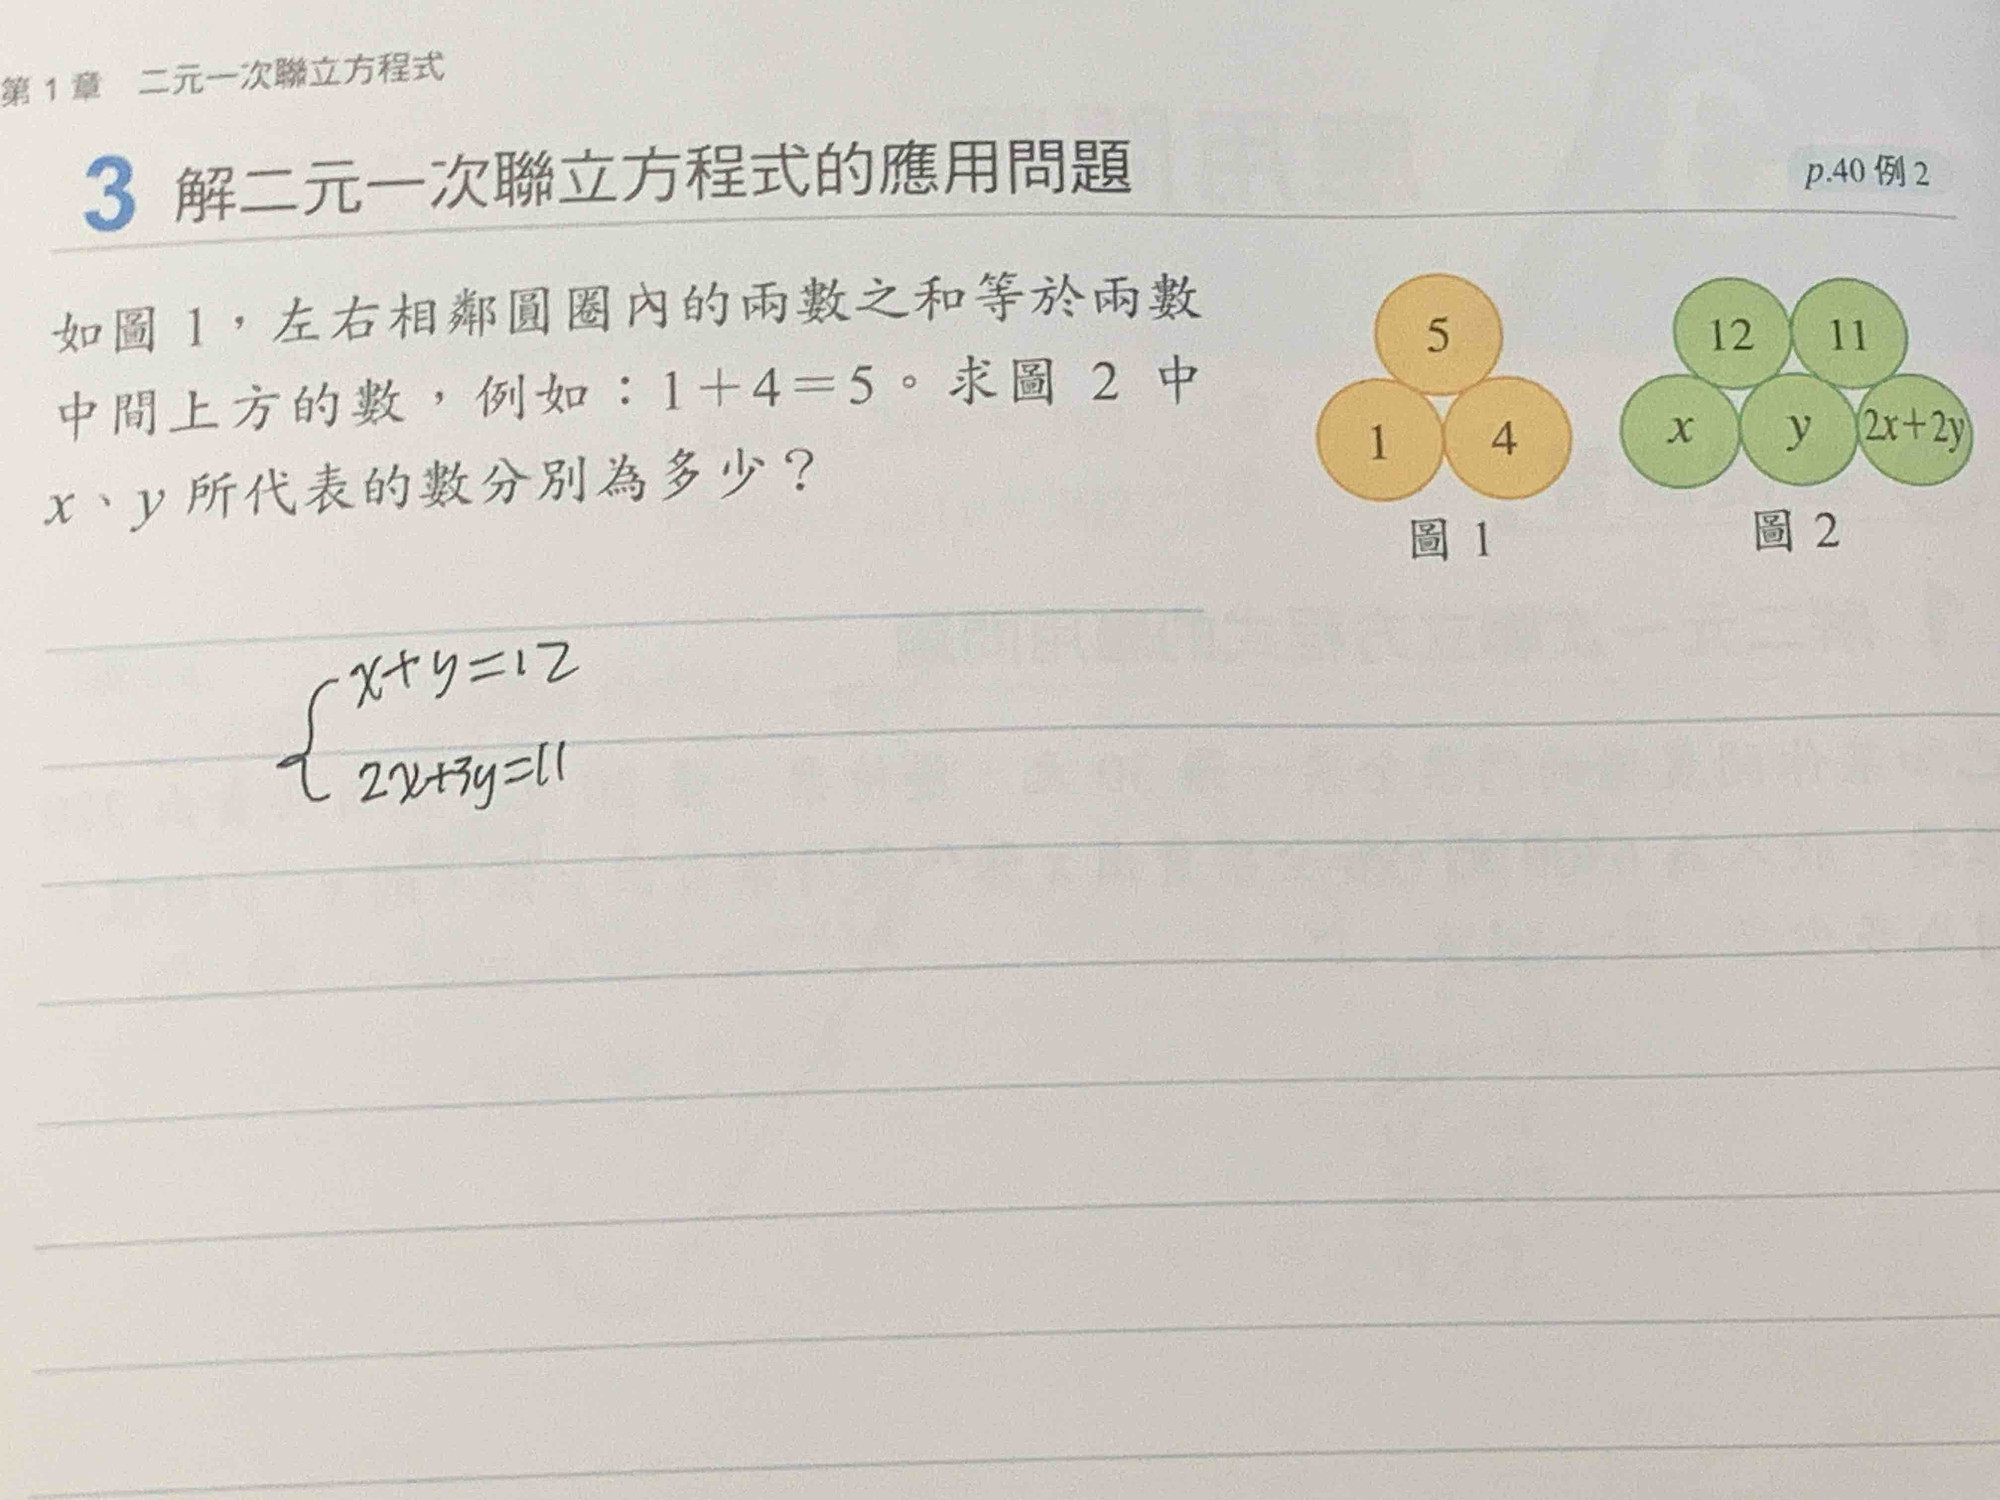 第 1 章 二元一次聯立方程式
3 解二元一次聯立方程式的應用問題
p.40 例 2
如圖 1，左右相鄰圓圈內的兩數之和等於兩數
中間上方的數，例如：1＋4＝5。求圖 2 中
x、y 所代表的數分別為多少？
5
1 4
圖 1
12 11
x y 2x+2y
圖 2
x+y=12
2x+3y=11